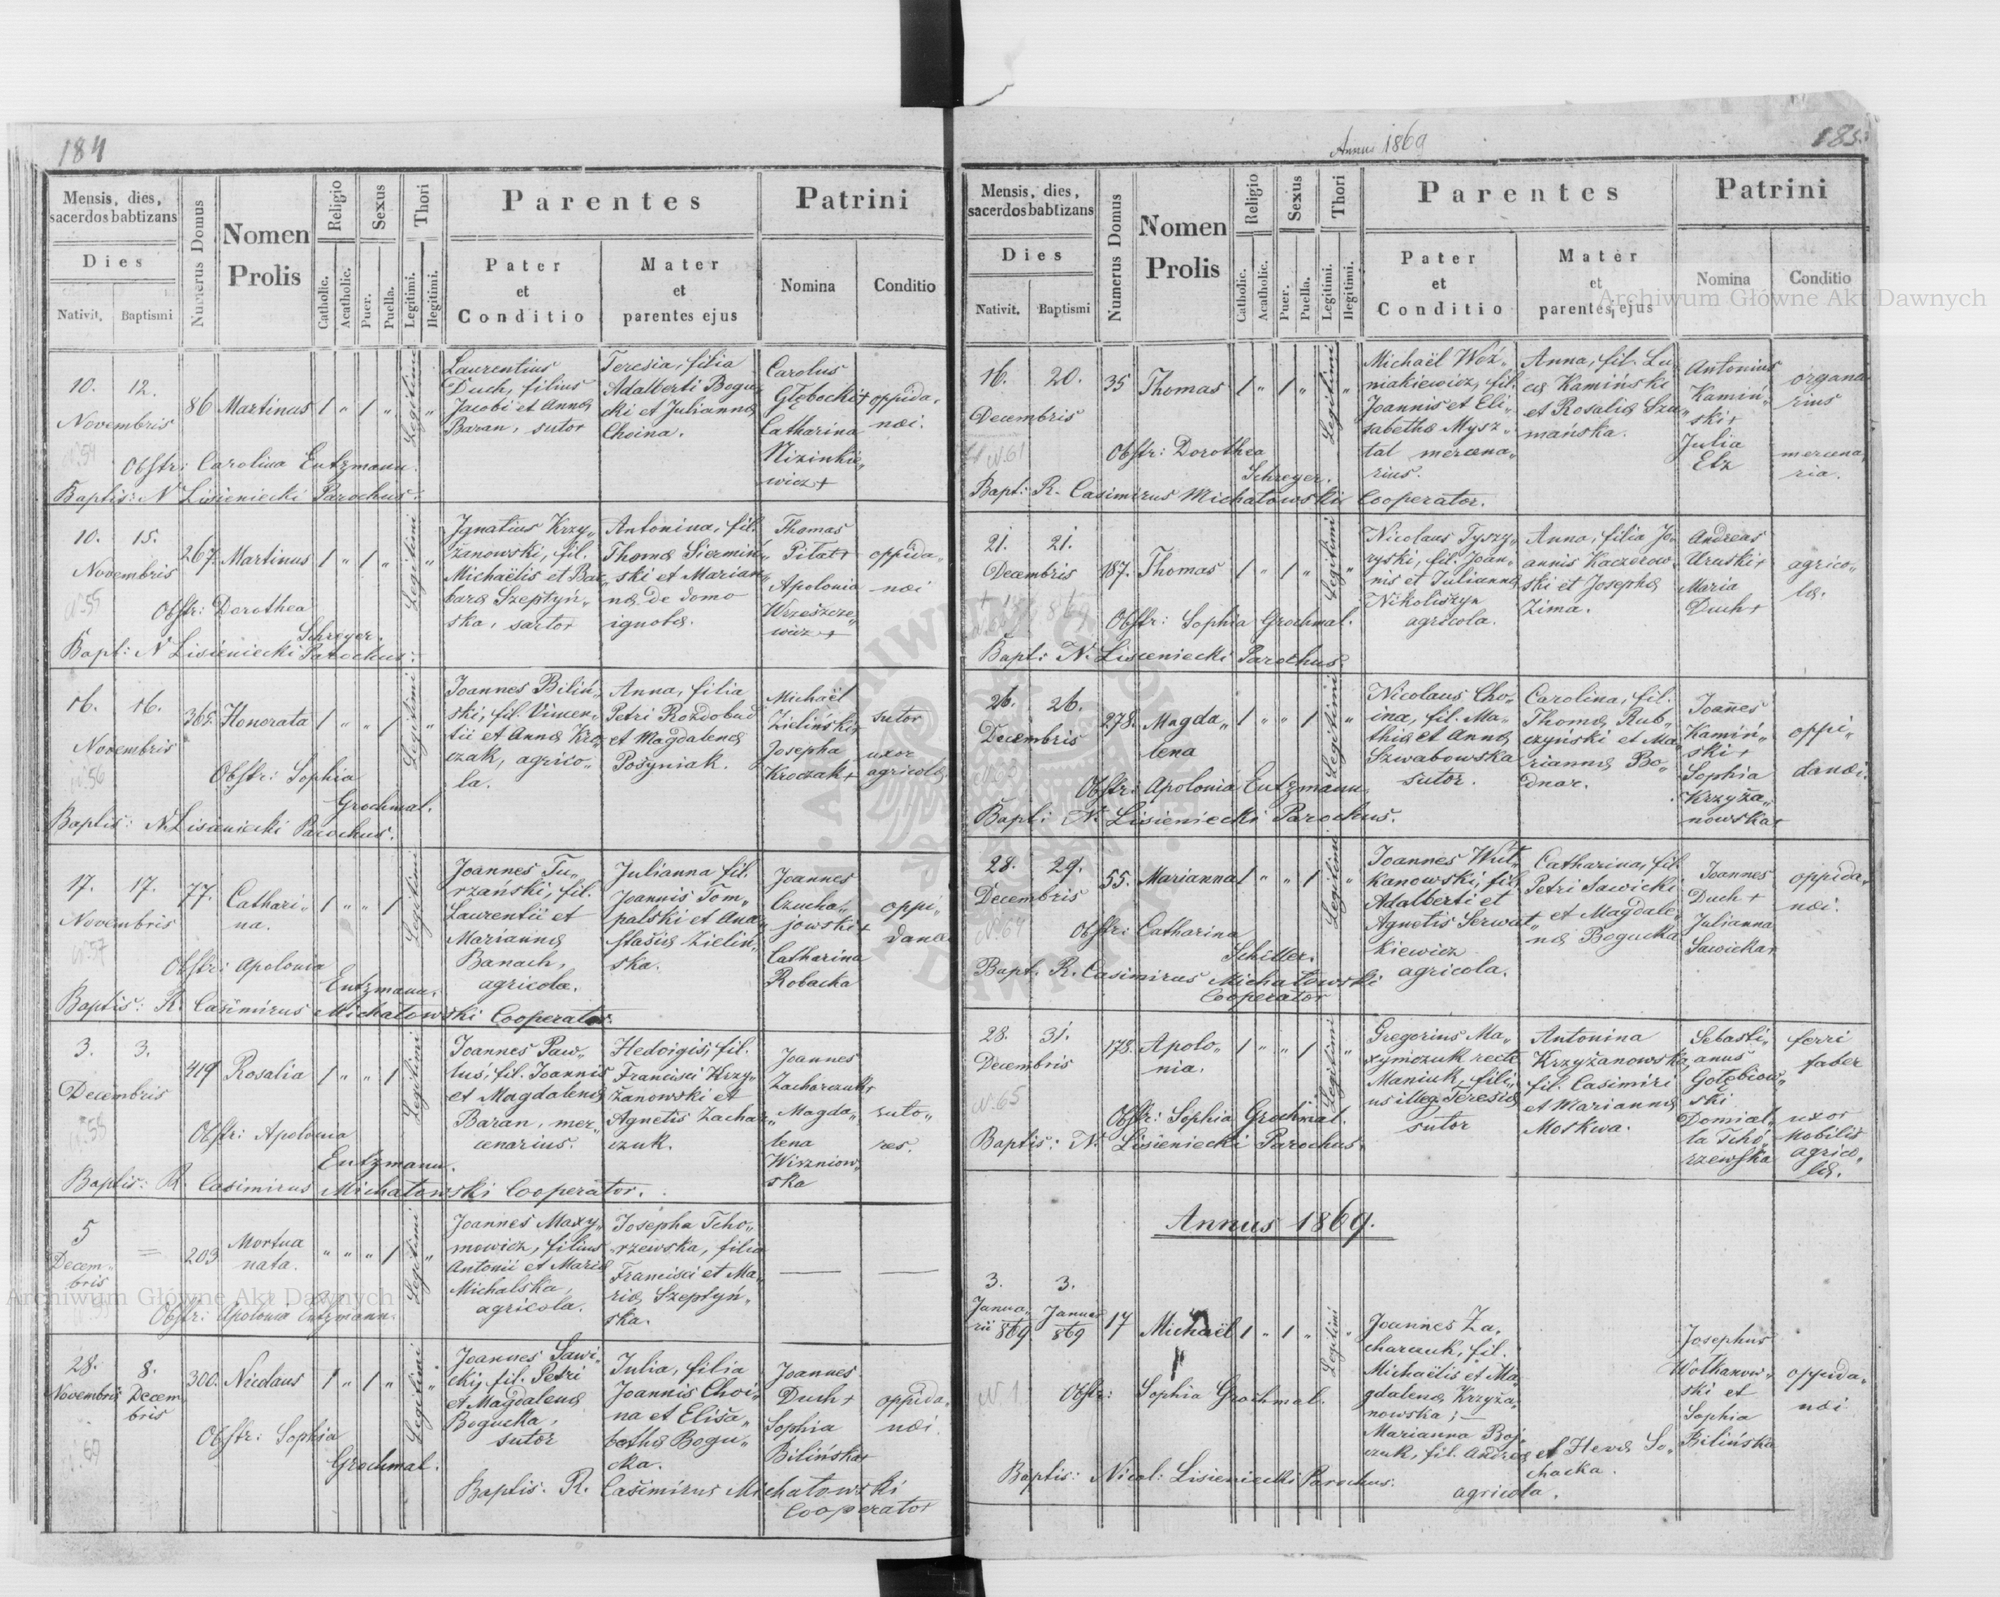 184
Mensis, dies,
sacerdos babtizans
Dies
Nativit. Baptismi
Numerus Domus
Nomen
Prolis
Religio
Catholic. Acatholic.
Sexus
Puer. Puella.
Thori
Legitimi. Ilegitimi.
Parentes
Pater
et
Conditio
Mater
et
parentes ejus
Patrini
Nomina
Conditio
10. 12.
Novembris
86 Martinus 1 " 1 " Legitimi "
Laurentius
Duch, filius
Jacobi et Annæ
Baran, sutor
Teresia, filia
Adalberti Bogu„
cki et Juliannæ
Choina.
Carolus
Głębocki +
Catharina
Nizinkie„
wicz +
oppida„
næi.
N. 54
Obstr: Carolina Entzmann.
Baptis: N Lisieniecki Parochus.
10. 15.
Novembris
267. Martinus 1 " 1 " Legitimi "
Ignatius Krzy„
żanowski, fil.
Michaëlis et Bar„
baræ Szeptyń„
ska, sartor
Antonina, fil.
Thomæ Siermiń„
ski et Marian„
næ de domo
ignotæ.
Thomas
Pitat +
Apolonia
Wrzeszcze„
wicz +
oppida„
næi
N. 55
Obstr: Dorothea
Schreyer.
Bapt: N Lisieniecki Parochus.
16. 16.
Novembris
365. Honorata 1 " " 1 Legitimi "
Joannes Biliń„
ski, fil. Vincen„
tii et Annæ Kro„
czak, agrico„
la.
Anna, filia
Petri Rozdobud
et Magdalenæ
Posyniak.
Michaël
Zieliński +
Josepha
Kroczak +
sutor
uxor
agricolæ
N. 56
Obstr: Sophia
Grochmal.
Baptis: N Lisieniecki Parochus.
17. 17.
Novembris
77. Cathari„
na. 1 " " 1 Legitimi
Joannes Tu„
rzański, fil.
Laurentii et
Mariannæ
Banach,
agricolæ.
Julianna fil.
Joannis Tom„
palski et Ana„
stasiæ Zieliń„
ska.
Joannes
Czucha„
jowski +
Catharina
Robacka
oppi„
danæi
N. 57
Obstr: Apolonia
Entzmann.
Baptis: R. Casimirus Michałowski Cooperator.
3. 3.
Decembris
419 Rosalia 1 " " 1 Legitimi
Joannes Paw„
lus, fil. Joannis
et Magdalenæ
Baran, mer„
cenarius.
Hedvigis, fil.
Francisci Krzy„
żanowski et
Agnetis Zachar„
czuk.
Joannes
Zacharczuk +
Magda„
lena
Wiszniow„
ska
suto„
res.
N. 58
Obstr: Apolonia
Entzmann.
Baptis: R. Casimirus Michałowski Cooperator.
5
Decem„
bris
203 Mortua
nata. " " " 1 Legitimi "
Joannes Maxy„
mowicz, filius
Antonii et Mariæ
Michalska,
agricola.
Josepha Tcho„
rzewska, filia
Francisci et Ma„
riæ Szeptyń„
ska.
Obstr: Apolonia Entzmann.
28. 8.
Novembris Decem
bris
300. Nicolaus 1 " 1 " Legitimi "
Joannes Sawi„
cki, fil. Petri
et Magdalenæ
Bogucka,
sutor
Julia, filia
Joannis Choi„
na et Elisa„
bethæ Bogu„
cka.
Joannes
Duch +
Sophia
Bilińska +
oppida„
næi.
N. 60
Obstr: Sophia
Grochmal.
Baptis: R. Casimirus Michałowski
Cooperator
Annus 1869
185.
Mensis, dies,
sacerdos babtizans
Dies
Nativit. Baptismi
Numerus Domus
Nomen
Prolis
Religio
Catholic. Acatholic.
Sexus
Puer. Puella.
Thori
Legitimi. Ilegitimi.
Parentes
Pater
et
Conditio
Mater
et
parentes ejus
Patrini
Nomina
Conditio
16. 20.
Decembris
35 Thomas 1 " 1 " Legitimi "
Michaël Woź„
niakiewicz, fil.
Joannis et Eli„
sabethæ Mysz„
tal mercena„
rius.
Anna, fil. Lu„
cæ Kamiński
et Rosaliæ Szu„
mańska.
Antonius
Kamiń„
ski +
Julia
Etz
organa
rius
mercena„
ria.
N. 61
Obstr: Dorothea
Schreyer.
Bapt: R. Casimirus Michałowski Cooperator.
21. 21.
Decembris
187. Thomas 1 " 1 " Legitimi "
Nicolaus Tyszy„
ryski, fil. Joan„
nis et Juliannæ
Nikoliszyn
agricola.
Anna, filia Jo„
annis Kaczorow„
ski et Josephæ
Zima.
Andreas
Uruski +
Maria
Duch +
agrico„
læ.
Obstr: Sophia Grochmal.
Bapt: N. Lisieniecki Parochus.
26. 26.
Decembris
278. Magda„
lena 1 " " 1 Legitimi "
Nicolaus Cho„
ina, fil. Ma„
thiæ et Annæ
Szwabowska
sutor.
Carolina, fil.
Thomæ Rub„
czyński et Ma„
riannæ Bo„
dnar.
Joannes
Kamiń„
ski +
Sophia
Krzyża„
nowska +
oppi„
danæi.
N. 63
Obstr: Apolonia Entzmann.
Bapt: N. Lisieniecki Parochus.
28. 29.
Decembris
55. Marianna 1 " " 1 Legitimi "
Joannes Wut„
kanowski, fil.
Adalberti et
Agnetis Serwat„
kiewicz
agricola.
Catharina, fil.
Petri Sawicki
et Magdale„
næ Bogucka
Joannes
Duch +
Julianna
Sawicka +
oppida„
næi.
N. 64
Obstr: Catharina
Schiller.
Bapt. R. Casimirus Michałowski
Cooperator
28. 31.
Decembris
178. Apolo„
nia. 1 " " 1 Legitimi "
Gregorius Ma„
xymczuk recte
Maniuk, fili„
us illeg. Teresiæ
sutor
Antonina
Krzyżanowska,
fil. Casimiri
et Mariannæ
Moskwa.
Sebasti„
anus
Gołębiow„
ski
Domicel„
la Tcho„
rzewska
ferri
faber
uxor
nobilis
agrico„
læ.
N. 65
Obstr: Sophia Grochmal.
Baptis: N. Lisieniecki Parochus.
Annus 1869.
3. 3.
Janua„
rii 869
Januar
869
17 Michaël 1 " 1 " Legitimi "
Joannes Za„
charczuk, fil.
Michaëlis et Ma„
gdalenæ Krzyża„
nowska; —
Marianna Boj„
czuk, fil. Andreæ et Hevæ So„
chacka.
agricola.
Josephus
Wolkanow„
ski et
Sophia
Bilińska
oppida„
næi
N. 1
Obstr: Sophia Grochmal.
Baptis: Nicol: Lisieniecki Parochus.
Archiwum Główne Akt Dawnych
Archiwum Główne Akt Dawnych